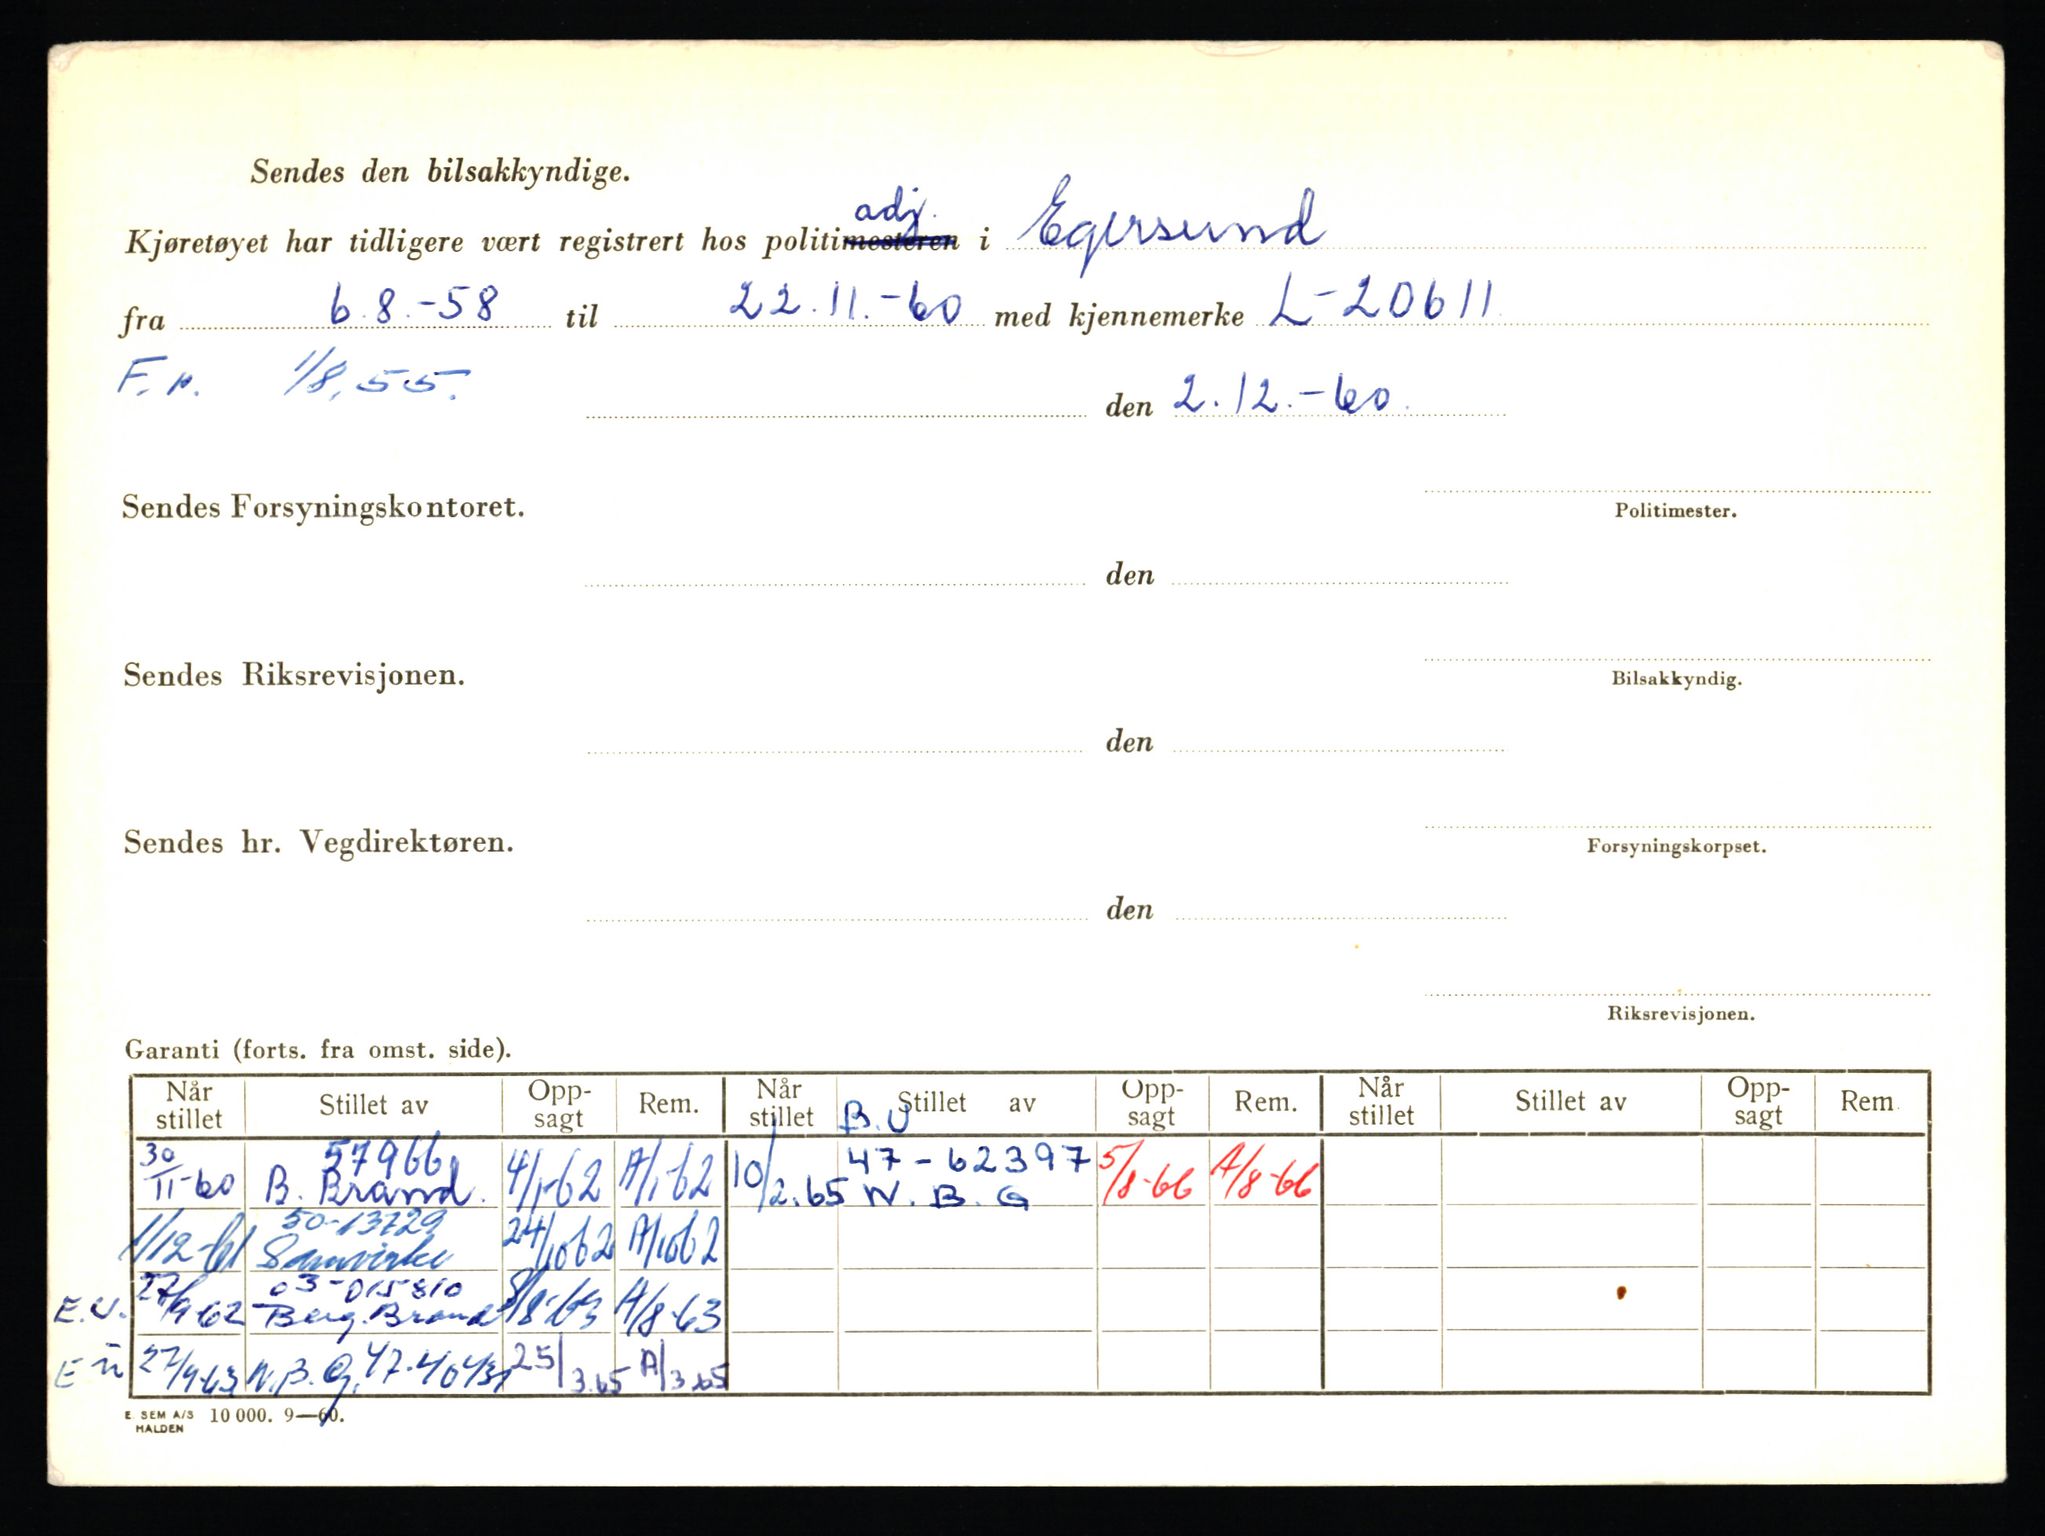 Sendes den bilsakkyndige.
adj.
Kjøretøyet har tidligere vært registrert hos politimesteren i Egersund
fra 6.8.-58 til 22.11.-60 med kjennemerke L-20611
F.r. 1/8.55.
den 2.12.-60.
Sendes Forsyningskontoret.
Politimester.
den
Sendes Riksrevisjonen.
Bilsakkyndig.
den
Sendes hr. Vegdirektøren.
Forsyningskorpset.
den
Riksrevisjonen.
Garanti (forts. fra omst. side).
Når stillet Stillet av Opp-sagt Rem. Når stillet Stillet av Opp-sagt Rem. Når stillet Stillet av Opp-sagt Rem
B.U
30/11-60 57966 B. Brand. 4/1-62 A/1-62 10/2.65 47-62397 N.B.G 5/8-66 A/8-66
1/12-61 50-13729 Samvirke 24/10 62 A/10 62
E.U. 27/9-62 03-015810 Berg. Brand 8/8-63 A/8-63
E U 27/9-63 N.B.G. 47-40431 25/3.65 A/3.65
E. SEM A/S HALDEN 10 000. 9—60.